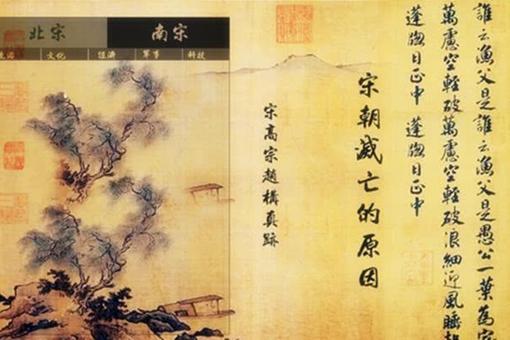 北宋
南宋
文化
經濟
軍事
科技
誰云漁父是誰云漁父是愚公一葉為家
萬慮空輕破萬慮空輕破浪細迎風睡起
蓬牕日正中 蓬牕日正中
宋朝滅亡的原因
宋高宗趙構真跡